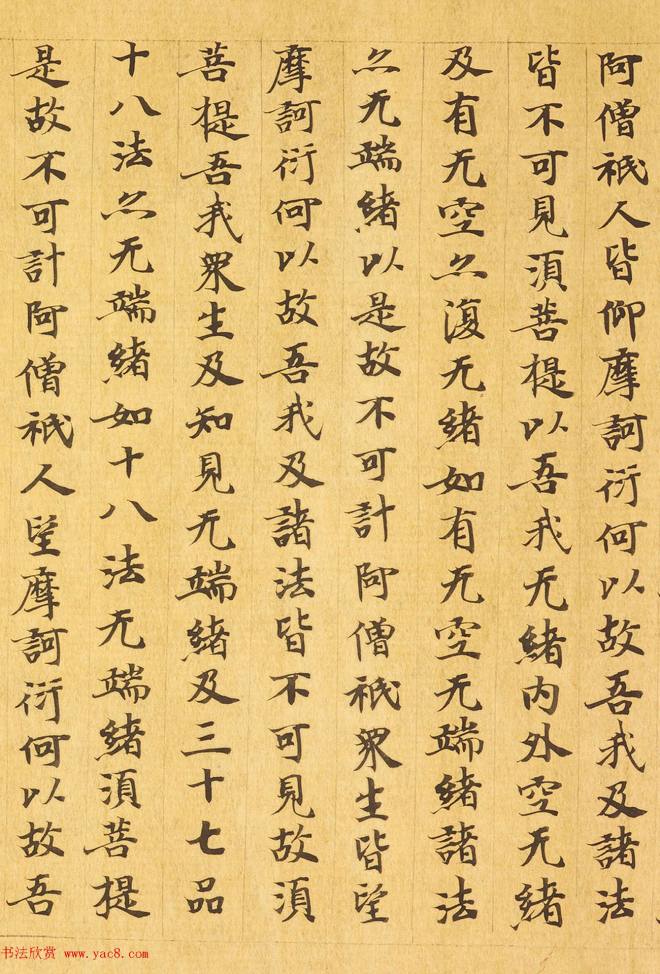 阿僧祇人皆仰摩訶衍何以故吾我及諸法
皆不可見湏菩提以吾我无緒內外空无緒
及有无空亦復无緒如有无空无端緒諸法
亦无端緒以是故不可計阿僧祇眾生皆望
摩訶衍何以故吾我及諸法皆不可見故湏
菩提吾我眾生及知見无端緒及三十七品
十八法亦无端緒如十八法无端緒湏菩提
是故不可計阿僧祇人望摩訶衍何以故吾
书法欣赏 www.yac8.com